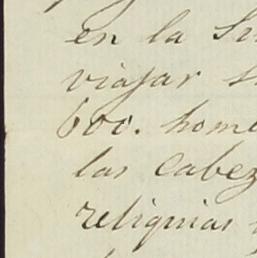 en la
viajar
600. hom
las Cabez
reliquias